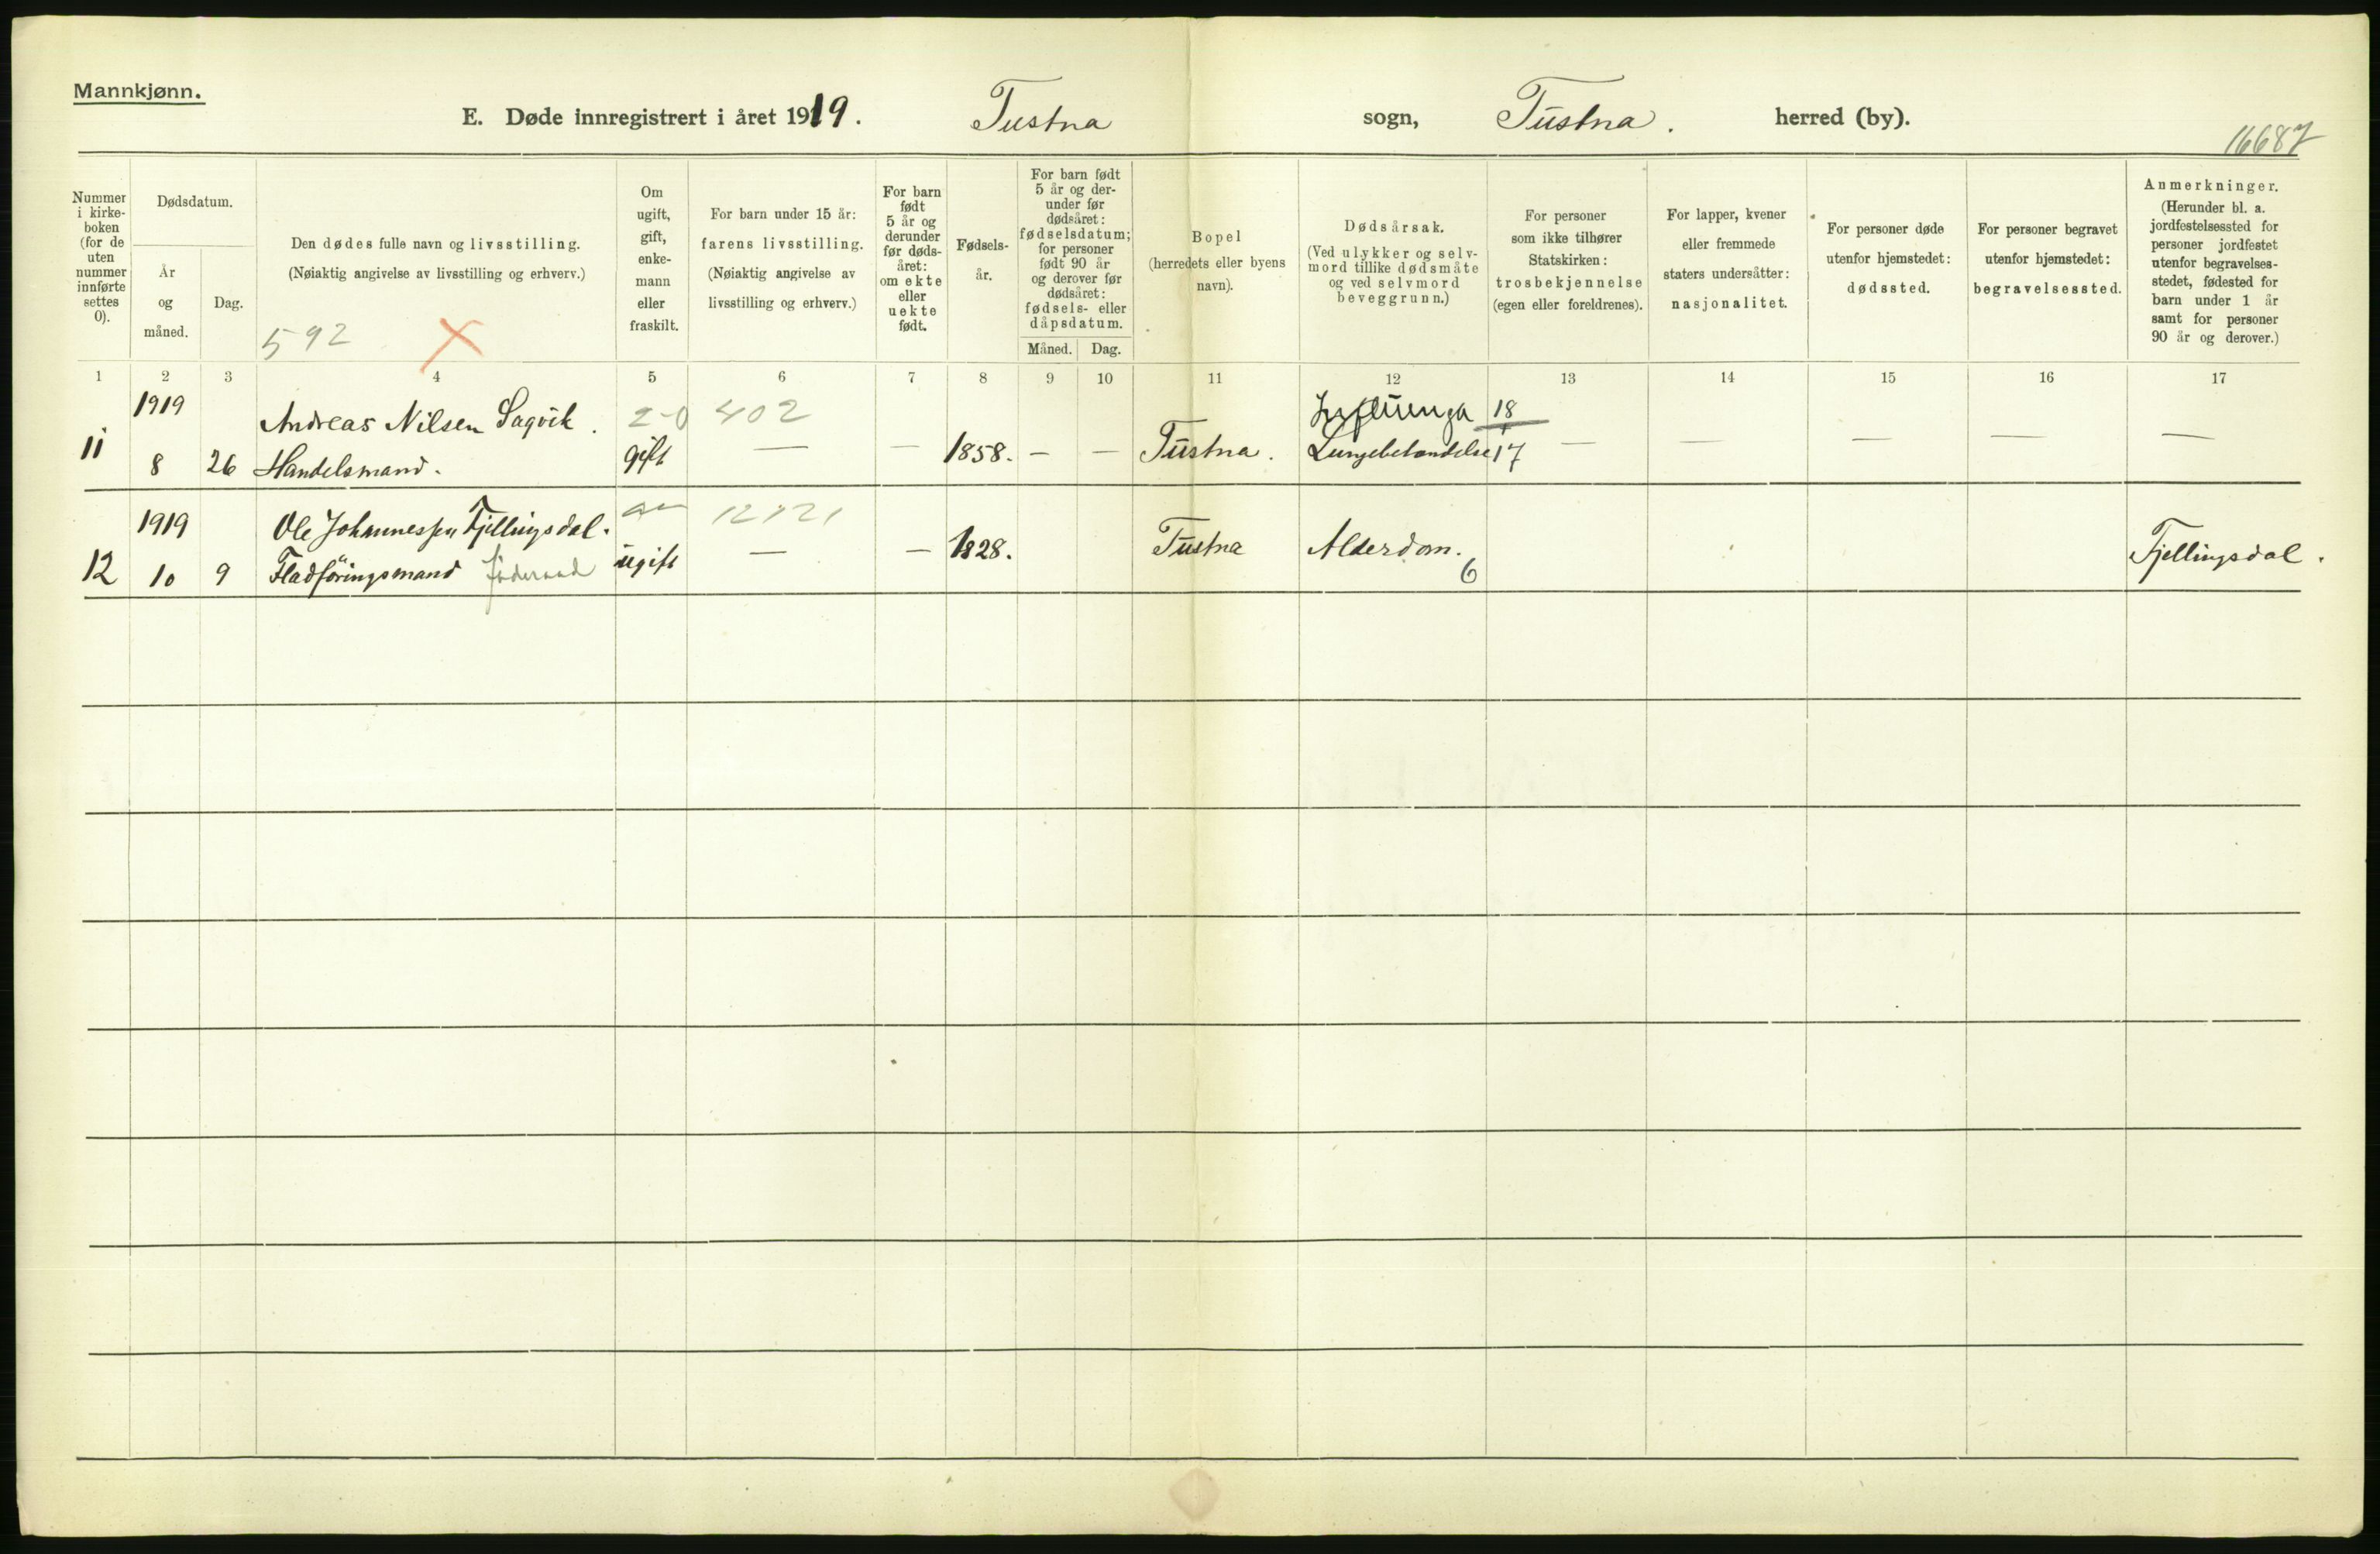 Mannkjønn.
E. Døde innregistrert i året 1919. Tustna sogn, Tustna. herred (by).
16687
Nummer i kirke-boken (for de uten nummer innførte settes 0).
Dødsdatum.
År og måned.
Dag.
Den dødes fulle navn og livsstilling.
(Nøiaktig angivelse av livsstilling og erhverv.)
592 X
Om ugift, gift, enke-mann eller fraskilt.
For barn under 15 år:
farens livsstilling.
(Nøiaktig angivelse av
livsstilling og erhverv.)
For barn født 5 år og derunder før døds-året: om ekte eller uekte født.
Fødsels-
år.
For barn født
5 år og der-
under før
dødsåret:
fødselsdatum;
for personer
født 90 år
og derover før
dødsåret:
fødsels- eller
dåpsdatum.
Måned. Dag.
Bopel
(herredets eller byens
navn).
Dødsårsak.
(Ved ulykker og selv-
mord tillike dødsmåte
og ved selvmord
beveggrunn.)
For personer
som ikke tilhører
Statskirken:
trosbekjennelse
(egen eller foreldrenes).
For lapper, kvener
eller fremmede
staters undersåtter:
nasjonalitet.
For personer døde
utenfor hjemstedet:
dødssted.
For personer begravet
utenfor hjemstedet:
begravelsessted.
Anmerkninger.
(Herunder bl. a.
jordfestelsessted for
personer jordfestet
utenfor begravelses-
stedet, fødested for
barn under 1 år
samt for personer
90 år og derover.)
1 2 3 4 5 6 7 8 9 10 11 12 13 14 15 16 17
1919 Andreas Nilsen Sagvik. 2-0 402 Influenza 18
11 8 26 Handelsmand. gift — — 1858. — — Tustna. Lungebetændelse 17 — — — — —
1919 Ole Johannessen Fjellingsdal. 12121
12 10 9 Fladføringsmand føderaad ugift — — 1828. Tustna Alderdom. 6 Fjellingsdal.